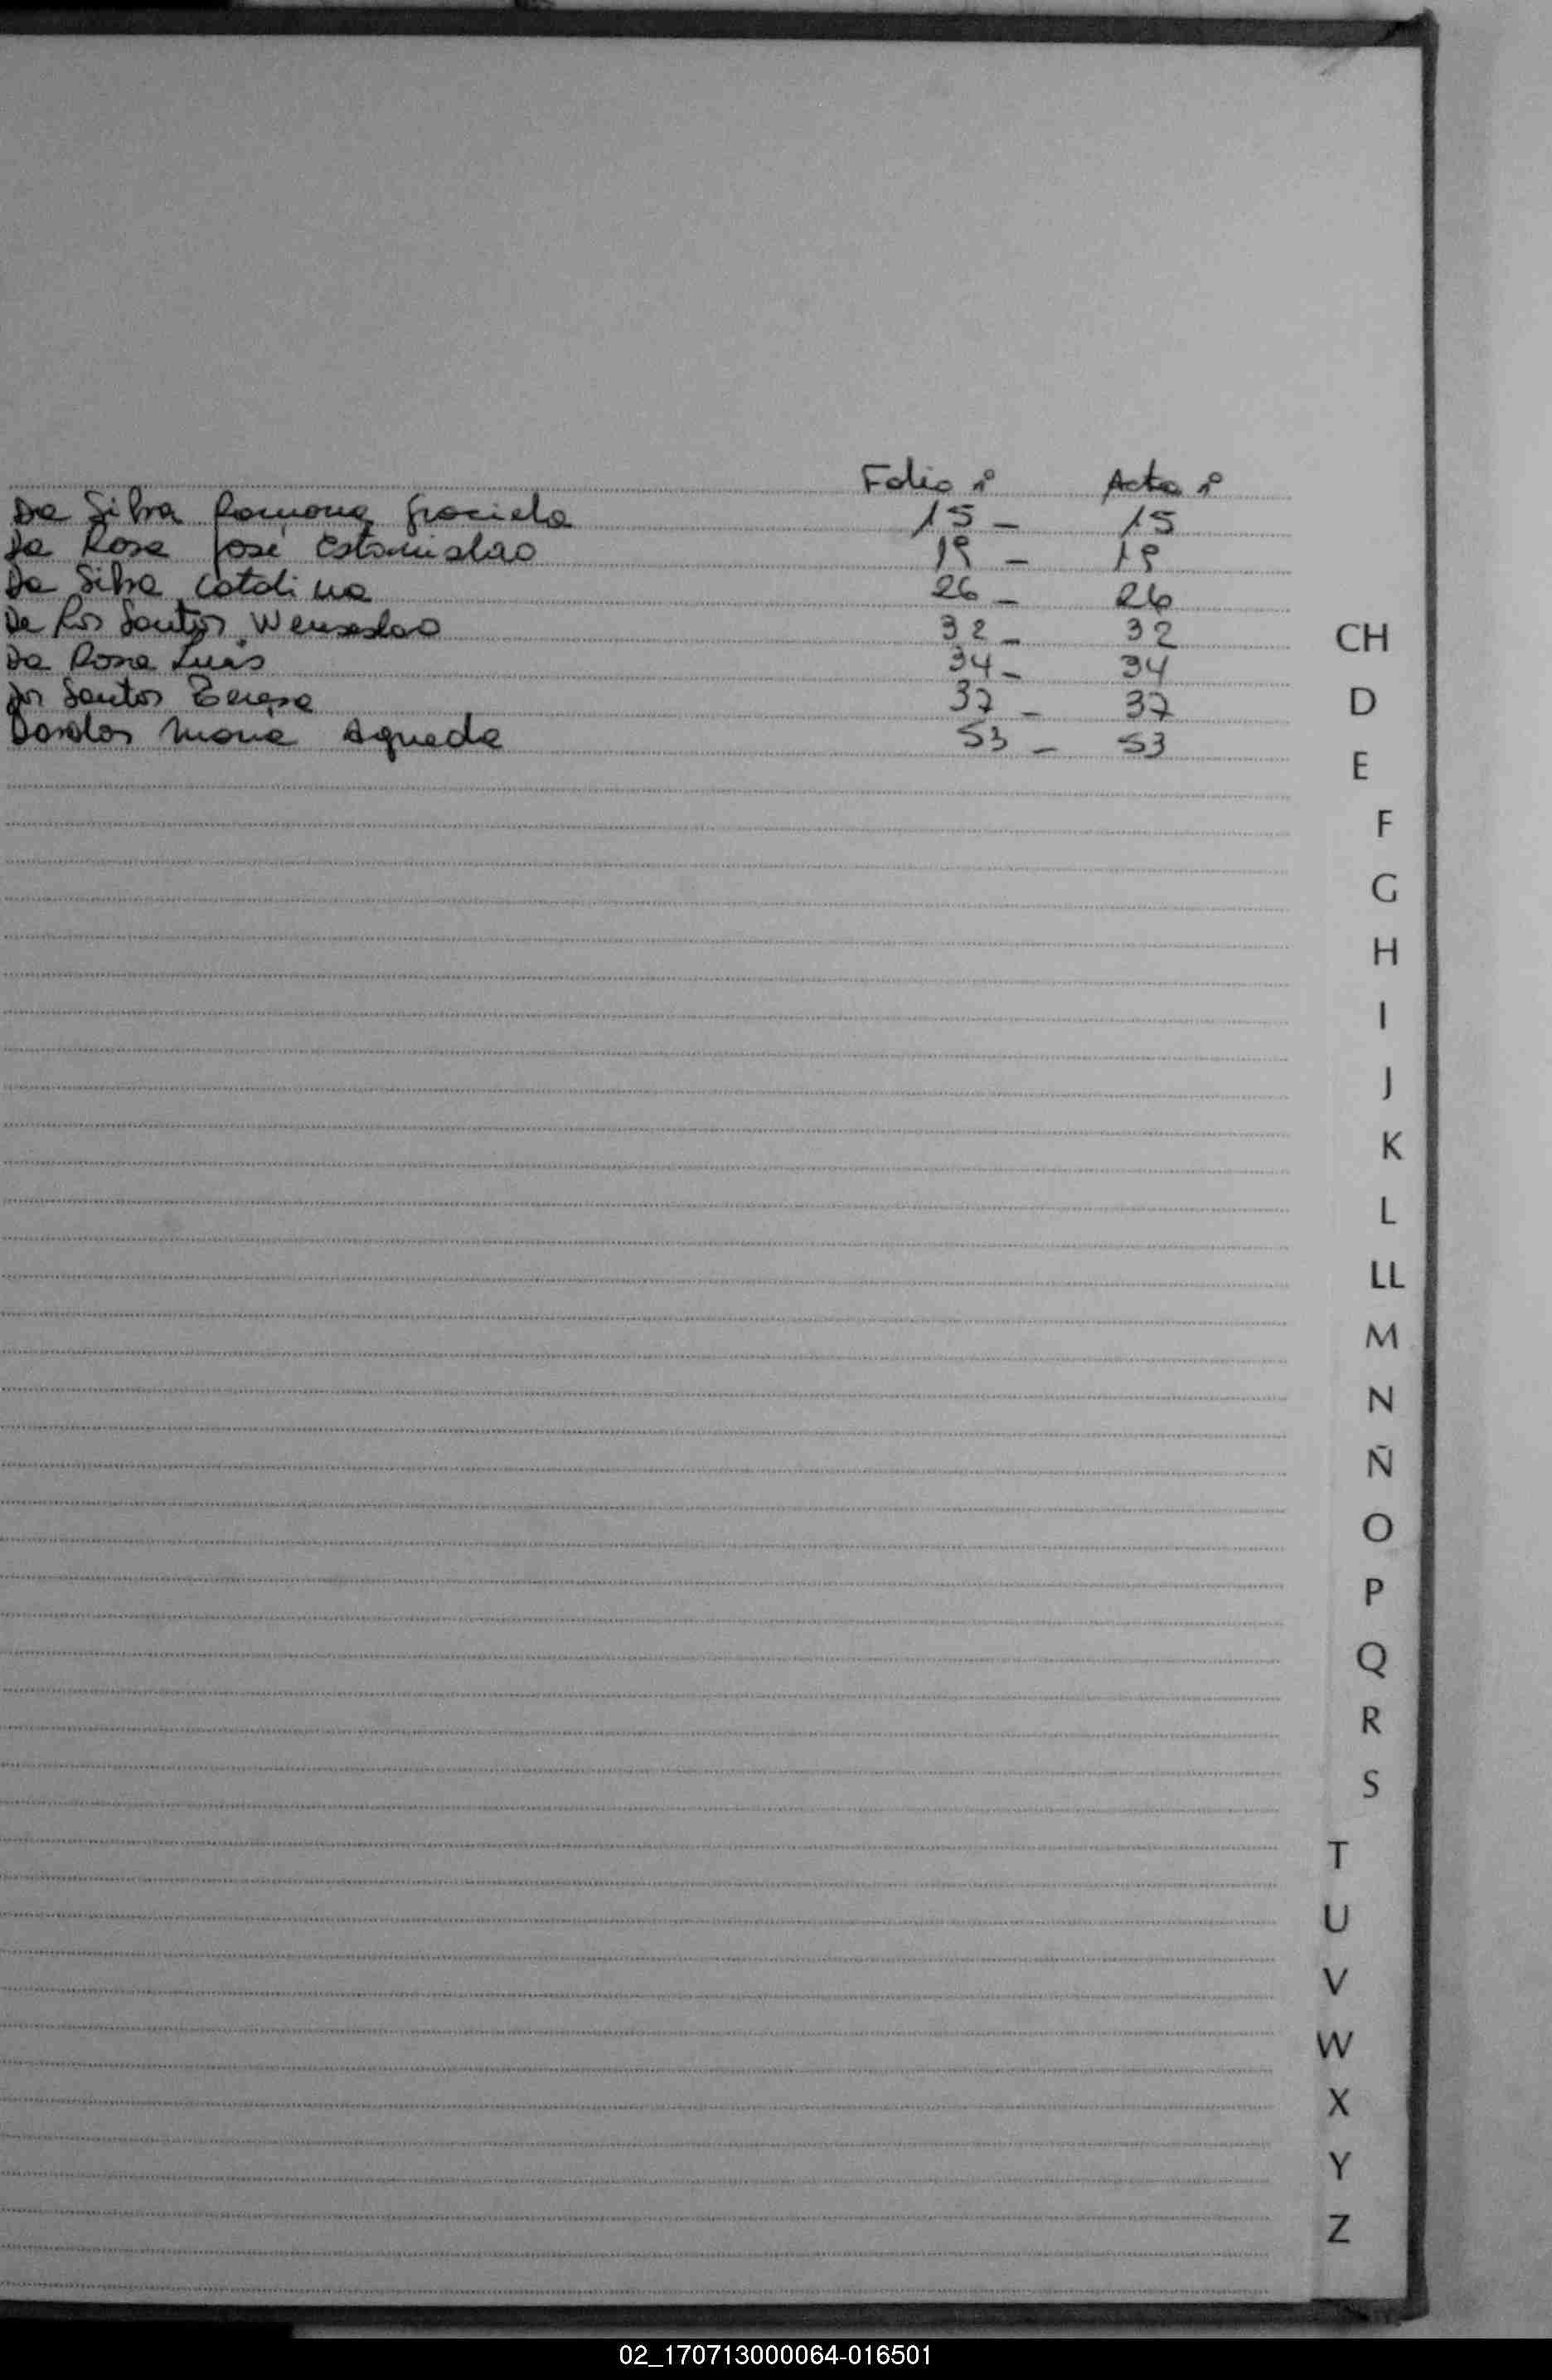 Folio nº Acta nº
Da Silva Ramona Graciela 15 - 15
Da Rosa José Estanislao 19 - 19
Da Silva Catalina 26 - 26
De Los Santos Wenseslao 32 - 32
Da Rosa Luis 34 - 34
Dos Santos Teresa 37 - 37
Maria Agueda 53 - 53
CH
D
E
F
G
H
I
J
K
L
LL
M
N
Ñ
O
P
Q
R
S
T
U
V
W
X
Y
Z
02_170713000064-016501